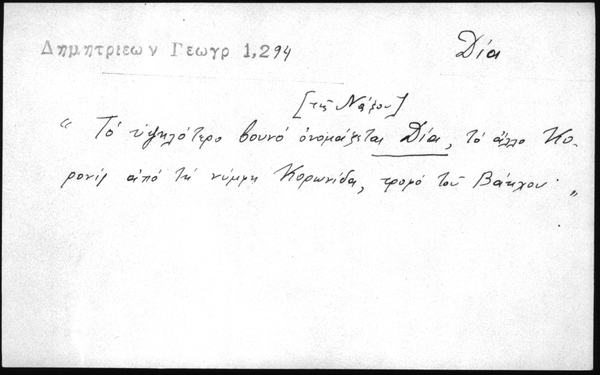 Δημητριεων Γεωγρ 1,294
Δία
[τῆς Νάξου]
“ Τό ὑψηλότερο βουνό ὀνομάζεται Δία, τό ἄλλο Κο-
ρονίς ἀπό τή νύμφη Κορωνίδα, τροφό τοῦ Βάκχου „